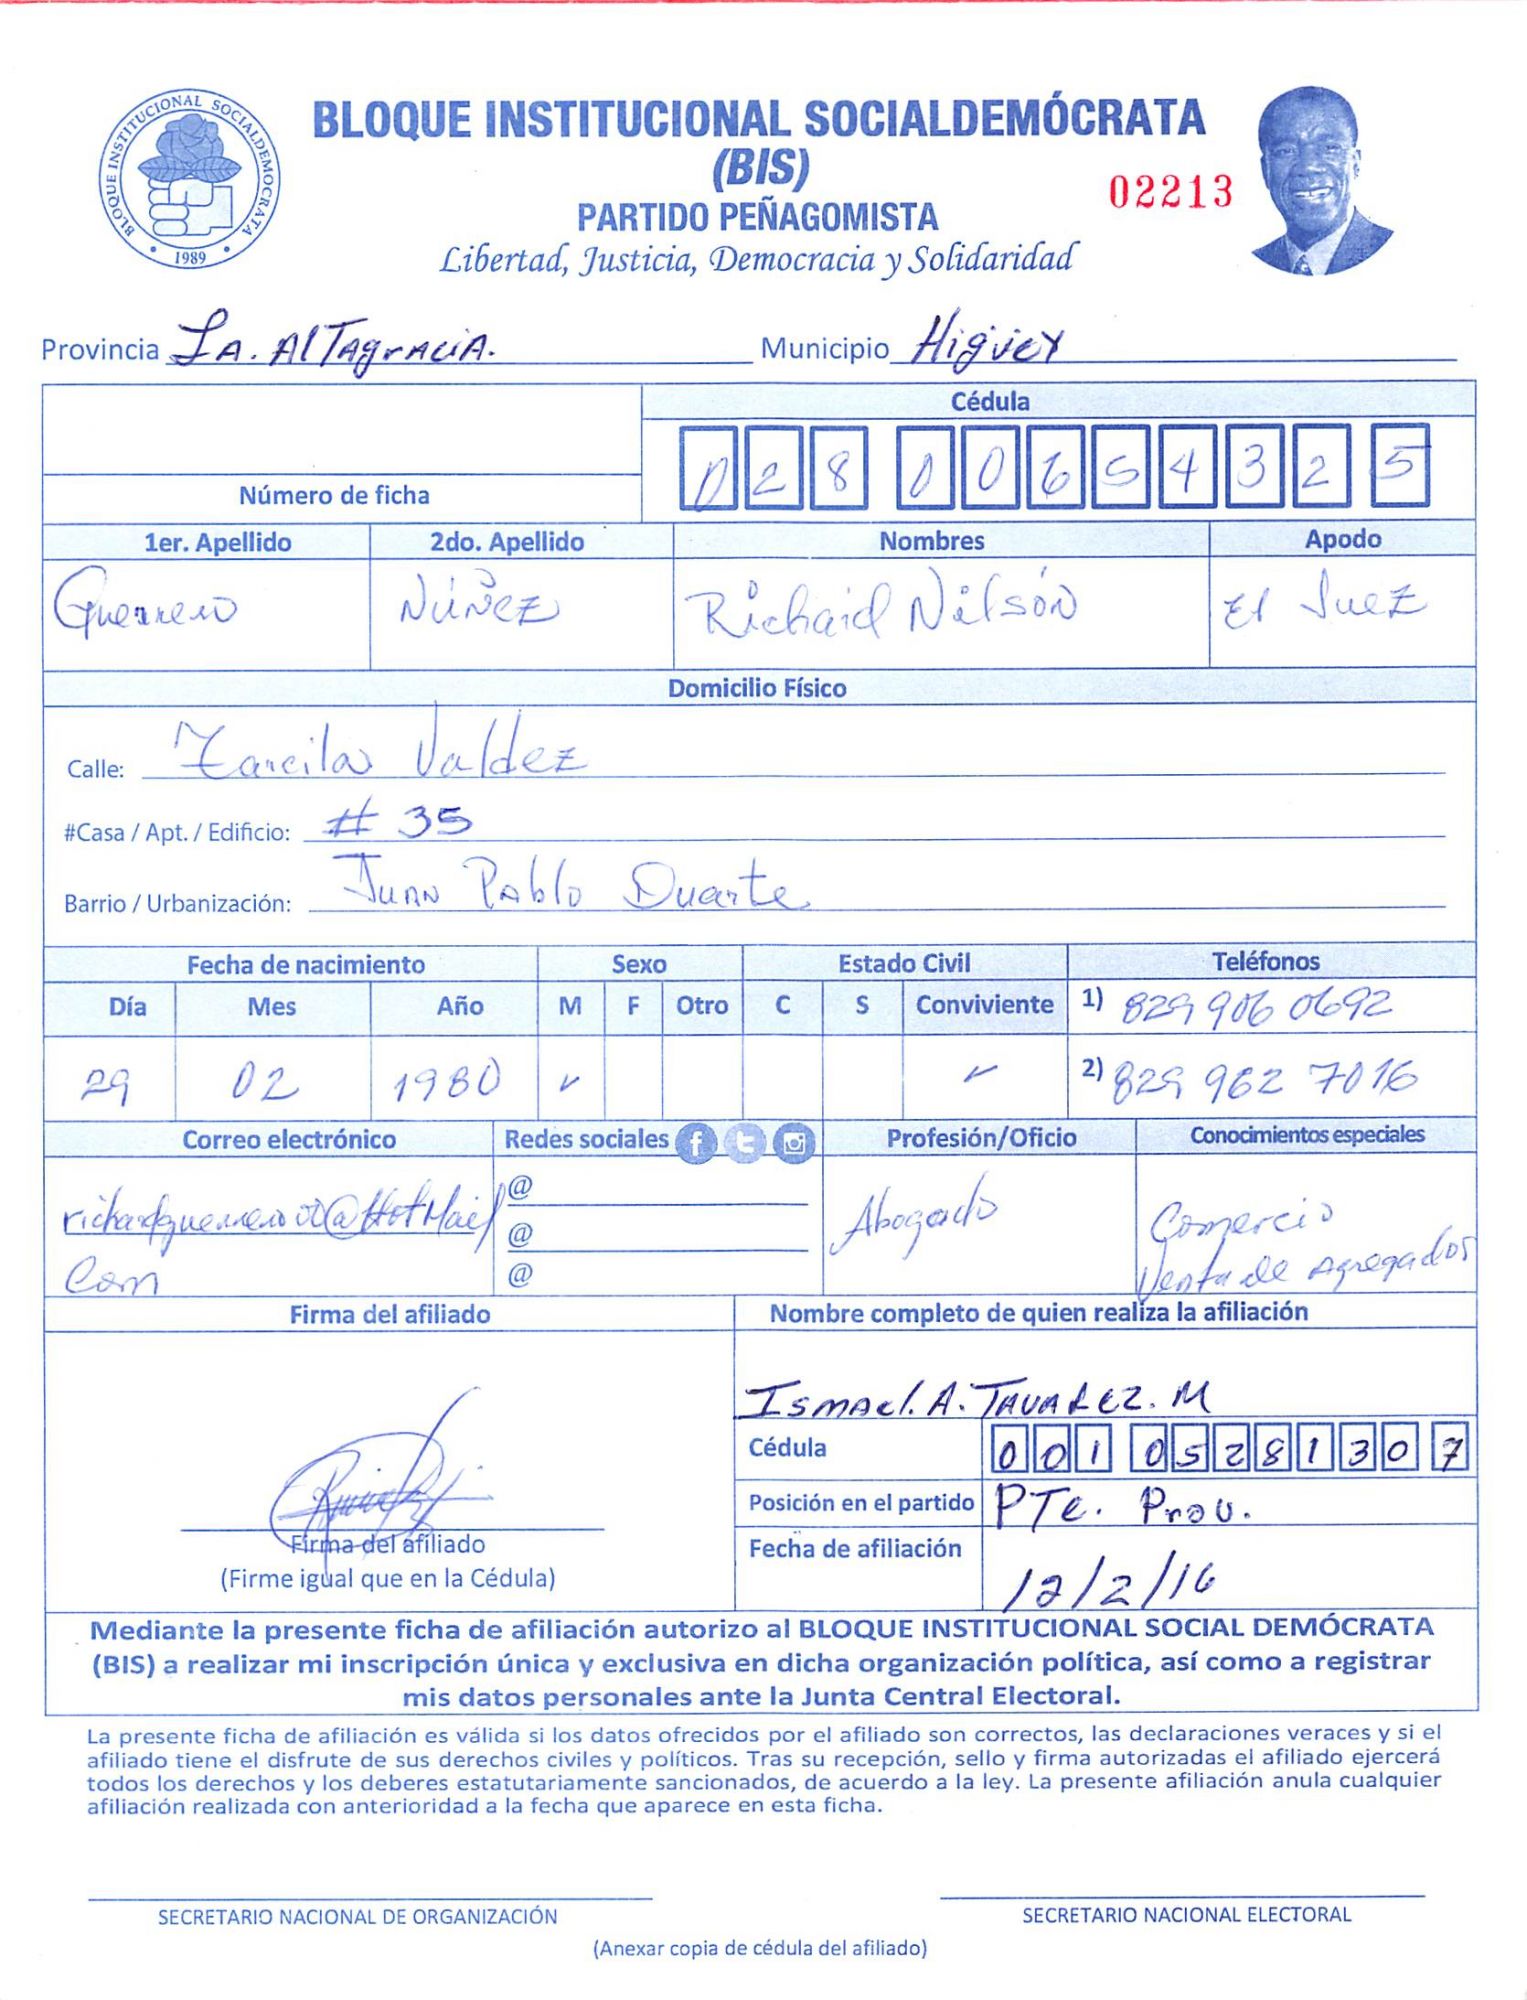 BLOQUE INSTITUCIONAL SOCIALDEMOCRATA
1989
BLOQUE INSTITUCIONAL SOCIALDEMÓCRATA
(BIS)
02213
PARTIDO PEÑAGOMISTA
Libertad, Justicia, Democracia y Solidaridad
Provincia La. AlTAgrAciA. Municipio Higüey
Cédula
028 0065432 5
Número de ficha
1er. Apellido 2do. Apellido Nombres Apodo
Guerrero Núñez Richard Nilsón El Juez
Domicilio Físico
Calle: Zarcila Valdez
#Casa / Apt. / Edificio: # 35
Barrio / Urbanización: Juan Pablo Duarte
Fecha de nacimiento Sexo Estado Civil Teléfonos
Día Mes Año M F Otro C S Conviviente 1) 829 906 0692
29 02 1980 ✓ ✓ 2) 829 962 7016
Correo electrónico Redes sociales Profesión/Oficio Conocimientos especiales
richardguerrero00@HotMail @ Abogado Comercio
Com @ Venta de Agregados
@
Firma del afiliado Nombre completo de quien realiza la afiliación
Ismael. A. Tavarez. M
Cédula 001 0528130 7
Posición en el partido PTe. Prov.
Firma del afiliado Fecha de afiliación 12/2/16
(Firme igual que en la Cédula)
Mediante la presente ficha de afiliación autorizo al BLOQUE INSTITUCIONAL SOCIAL DEMÓCRATA
(BIS) a realizar mi inscripción única y exclusiva en dicha organización política, así como a registrar
mis datos personales ante la Junta Central Electoral.
La presente ficha de afiliación es válida si los datos ofrecidos por el afiliado son correctos, las declaraciones veraces y si el
afiliado tiene el disfrute de sus derechos civiles y políticos. Tras su recepción, sello y firma autorizadas el afiliado ejercerá
todos los derechos y los deberes estatutariamente sancionados, de acuerdo a la ley. La presente afiliación anula cualquier
afiliación realizada con anterioridad a la fecha que aparece en esta ficha.
SECRETARIO NACIONAL DE ORGANIZACIÓN SECRETARIO NACIONAL ELECTORAL
(Anexar copia de cédula del afiliado)